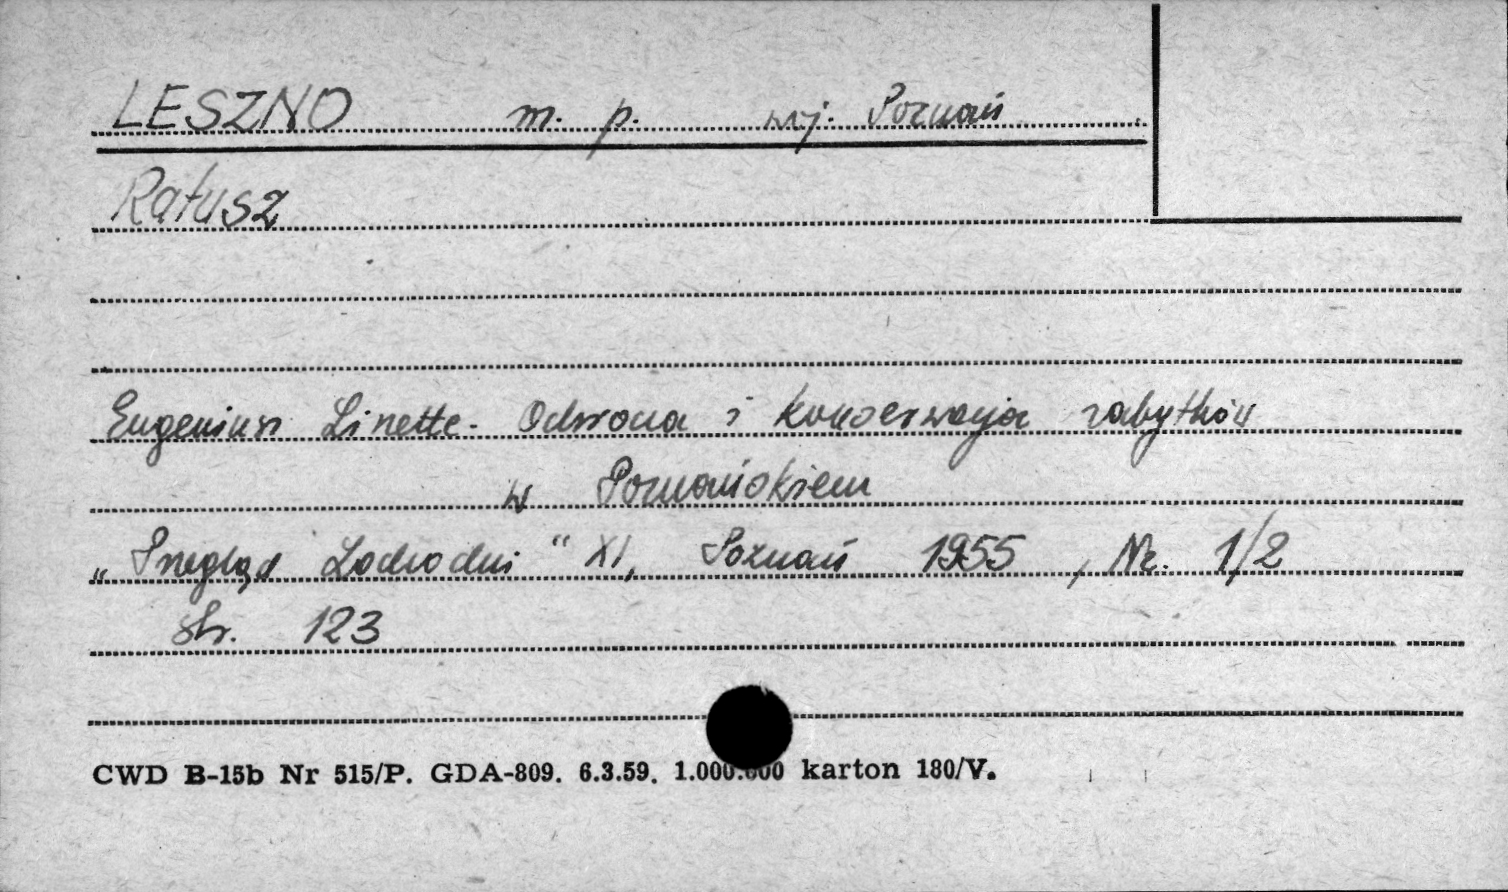 LESZNO m. p. woj. Poznań
Ratusz
Eugeniusz Linette. Ochrona i konserwacja zabytków
w Poznańskiem
„Przegląd Zachodni" XI, Poznań 1955, Nr. 1/2
str. 123
CWD B-15b Nr 515/P. GDA-809. 6.3.59. 1.000.000 karton 180/V.